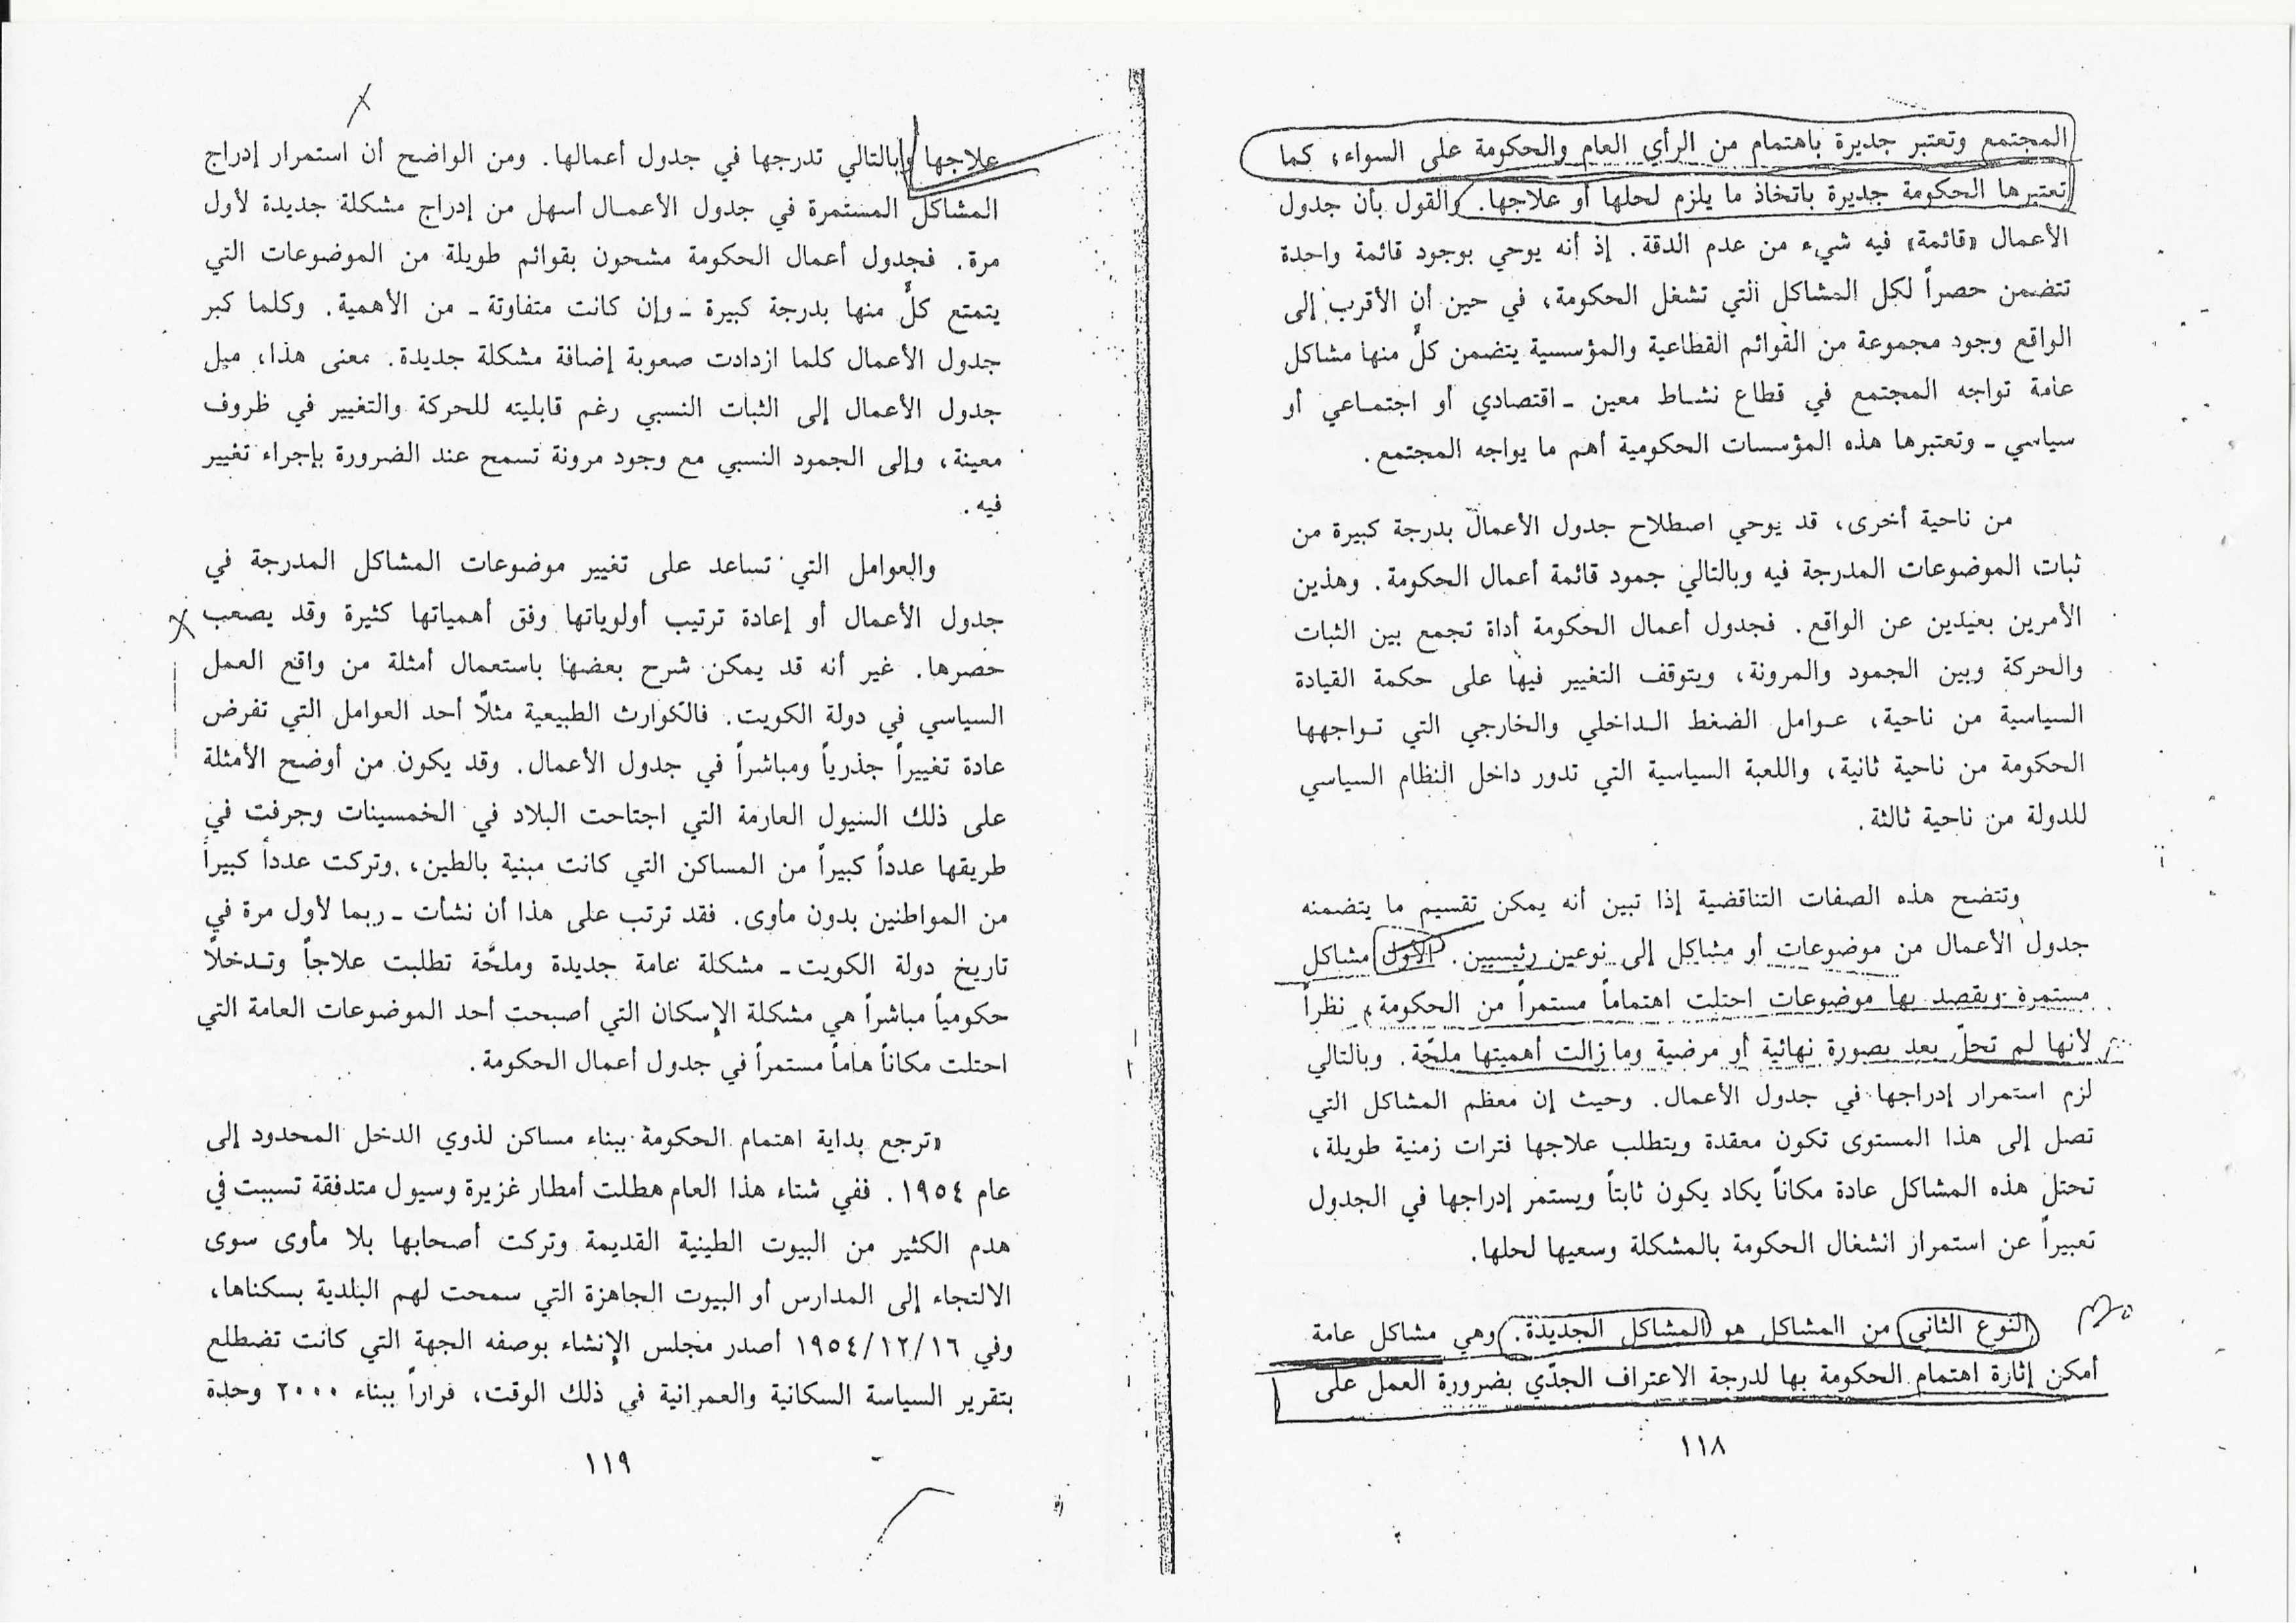 المجتمع وتعتبر جديرة باهتمام من الرأي العام والحكومة على السواء، كما
تعتبرها الحكومة جديرة باتخاذ ما يلزم لحلها أو علاجها. والقول بأن جدول
الأعمال «قائمة» فيه شيء من عدم الدقة. إذ أنه يوحي بوجود قائمة واحدة
تتضمن حصراً لكل المشاكل التي تشغل الحكومة، في حين أن الأقرب إلى
الواقع وجود مجموعة من القوائم القطاعية والمؤسسية يتضمن كلٌ منها مشاكل
عامة تواجه المجتمع في قطاع نشاط معين ـ اقتصادي أو اجتماعي أو
سياسي ـ وتعتبرها هذه المؤسسات الحكومية أهم ما يواجه المجتمع.
من ناحية أخرى، قد يوحي اصطلاح جدول الأعمال بدرجة كبيرة من
ثبات الموضوعات المدرجة فيه وبالتالي جمود قائمة أعمال الحكومة. وهذين
الأمرين بعيدين عن الواقع. فجدول أعمال الحكومة أداة تجمع بين الثبات
والحركة وبين الجمود والمرونة، ويتوقف التغيير فيها على حكمة القيادة
السياسية من ناحية، عوامل الضغط الداخلي والخارجي التي تواجهها
الحكومة من ناحية ثانية، واللعبة السياسية التي تدور داخل النظام السياسي
للدولة من ناحية ثالثة.
وتتضح هذه الصفات التناقضية إذا تبين أنه يمكن تقسيم ما يتضمنه
جدول الأعمال من موضوعات أو مشاكل إلى نوعين رئيسيين. الأول مشاكل
مستمرة ويقصد بها موضوعات احتلت اهتماماً مستمراً من الحكومة، نظراً
لأنها لم تحلّ بعد بصورة نهائية أو مرضية وما زالت أهميتها ملحّة. وبالتالي
لزم استمرار إدراجها في جدول الأعمال. وحيث إن معظم المشاكل التي
تصل إلى هذا المستوى تكون معقدة ويتطلب علاجها فترات زمنية طويلة،
تحتل هذه المشاكل عادة مكاناً يكاد يكون ثابتاً ويستمر إدراجها في الجدول
تعبيراً عن استمرار انشغال الحكومة بالمشكلة وسعيها لحلها.
النوع الثاني من المشاكل هو المشاكل الجديدة. وهي مشاكل عامة
أمكن إثارة اهتمام الحكومة بها لدرجة الاعتراف الجدّي بضرورة العمل على
١١٨
علاجها وبالتالي تدرجها في جدول أعمالها. ومن الواضح أن استمرار إدراج
المشاكل المستمرة في جدول الأعمال أسهل من إدراج مشكلة جديدة لأول
مرة. فجدول أعمال الحكومة مشحون بقوائم طويلة من الموضوعات التي
يتمتع كلٌ منها بدرجة كبيرة ـ وإن كانت متفاوتة ـ من الأهمية. وكلما كبر
جدول الأعمال كلما ازدادت صعوبة إضافة مشكلة جديدة. معنى هذا، ميل
جدول الأعمال إلى الثبات النسبي رغم قابليته للحركة والتغيير في ظروف
معينة، وإلى الجمود النسبي مع وجود مرونة تسمح عند الضرورة بإجراء تغيير
فيه.
والعوامل التي تساعد على تغيير موضوعات المشاكل المدرجة في
جدول الأعمال أو إعادة ترتيب أولوياتها وفق أهمياتها كثيرة وقد يصعب
حصرها. غير أنه قد يمكن شرح بعضها باستعمال أمثلة من واقع العمل
السياسي في دولة الكويت. فالكوارث الطبيعية مثلاً أحد العوامل التي تفرض
عادة تغييراً جذرياً ومباشراً في جدول الأعمال. وقد يكون من أوضح الأمثلة
على ذلك السيول العارمة التي اجتاحت البلاد في الخمسينات وجرفت في
طريقها عدداً كبيراً من المساكن التي كانت مبنية بالطين، وتركت عدداً كبيراً
من المواطنين بدون مأوى. فقد ترتب على هذا أن نشأت ـ ربما لأول مرة في
تاريخ دولة الكويت ـ مشكلة عامة جديدة وملحّة تطلبت علاجاً وتدخلاً
حكومياً مباشراً هي مشكلة الإسكان التي أصبحت أحد الموضوعات العامة التي
احتلت مكاناً هاماً مستمراً في جدول أعمال الحكومة.
«ترجع بداية اهتمام الحكومة ببناء مساكن لذوي الدخل المحدود إلى
عام ١٩٥٤. ففي شتاء هذا العام هطلت أمطار غزيرة وسيول متدفقة تسببت في
هدم الكثير من البيوت الطينية القديمة وتركت أصحابها بلا مأوى سوى
الالتجاء إلى المدارس أو البيوت الجاهزة التي سمحت لهم البلدية بسكناها،
وفي ١٩٥٤/١٢/١٦ أصدر مجلس الإنشاء بوصفه الجهة التي كانت تضطلع
بتقرير السياسة السكانية والعمرانية في ذلك الوقت، قراراً ببناء ٢٠٠٠ وحدة
١١٩